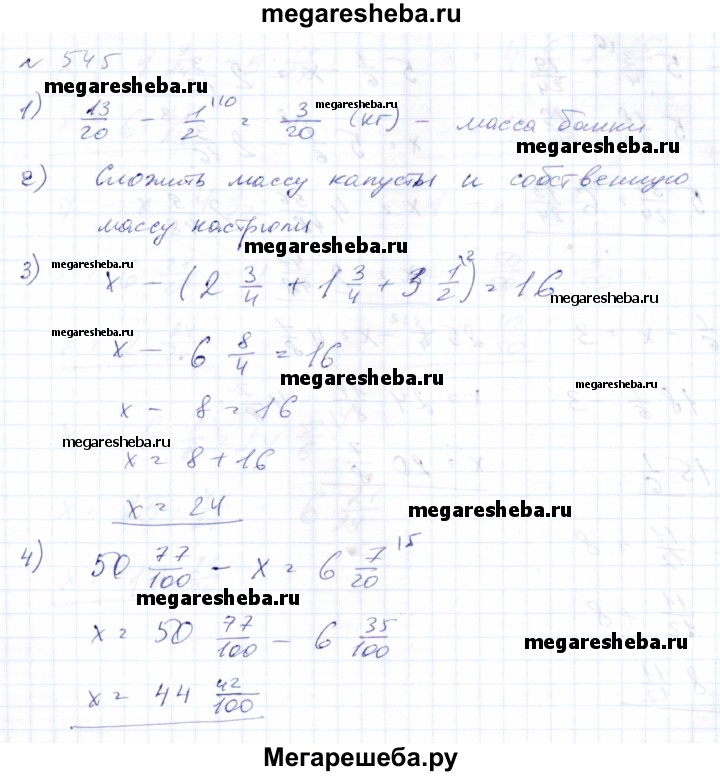 megaresheba.ru
№ 545
megaresheba.ru
1) 13/20 - 1/2 |10 = 3/20 (кг) - масса банки
megaresheba.ru
megaresheba.ru
2) Сложить массу капусты и собственную
массу кастрюли
megaresheba.ru
megaresheba.ru
3) x - (2 3/4 + 1 3/4 + 3 1/2 |2) = 16
megaresheba.ru
x - 6 8/4 = 16
megaresheba.ru
megaresheba.ru
x - 8 = 16
megaresheba.ru
x = 8 + 16
x = 24
megaresheba.ru
4) 50 77/100 - x = 6 7/20 |5
megaresheba.ru
x = 50 77/100 - 6 35/100
megaresheba.ru
x = 44 42/100
Мегарешеба.ру